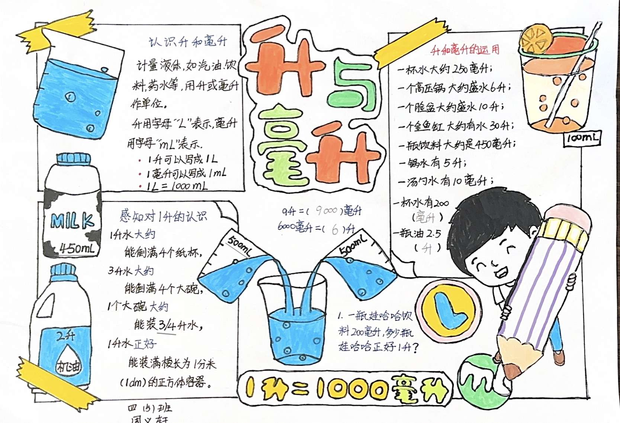 升与
毫升
认识升和毫升
计量液体，如汽油、饮
料、药水等，用升或毫升
作单位。
升用字母“L”表示，毫升
用字母“mL”表示。
• 1升可以写成1L
• 1毫升可以写成1mL
• 1L=1000mL
MILK
450mL
2升
机油
感知对1升的认识
1升水大约
能倒满4个纸杯，
3升水大约
能倒满4个大碗，
1个大碗大约
能装3/4升水，
1升水正好
能装满棱长为1分米
(1dm)的正方体容器。
四(5)班
9升=(9000)毫升
6000毫升=(6)升
500mL
500mL
1.一瓶娃哈哈饮
料200毫升，够少瓶
娃哈哈正好1升？
1升=1000毫升
升和毫升的运用
一杯水大约250毫升；
一个高压锅大约盛水6升；
一个脸盆大约盛水10升；
一个金鱼缸大约有水30升；
一瓶饮料大约是450毫升；
一锅水有5升；
一汤勺水有10毫升；
一杯水有200
(毫升)
一瓶油2.5
(升)
100mL
L
mL